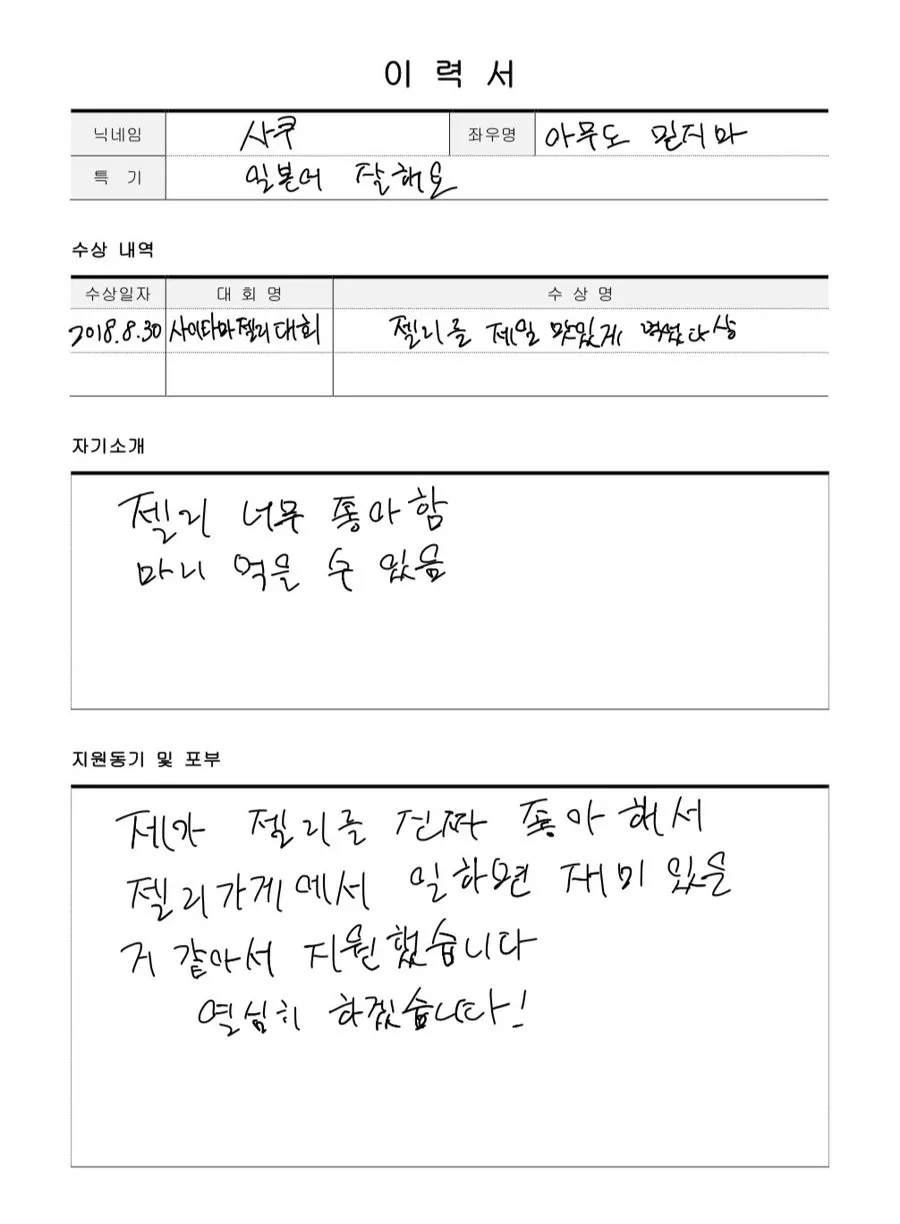 이 력 서
닉네임 사쿠 좌우명 아무도 믿지마
특 기 일본어 잘해요
수상 내역
수상일자 대 회 명 수 상 명
2018.8.30 사이타마젤리대회 젤리를 제일 맛있게 먹었다상
자기소개
젤리 너무 좋아함
마니 먹을 수 있음
지원동기 및 포부
제가 젤리를 진짜 좋아해서
젤리가게에서 일하면 재미있을
거 같아서 지원했습니다
열심히 하겠습니다!